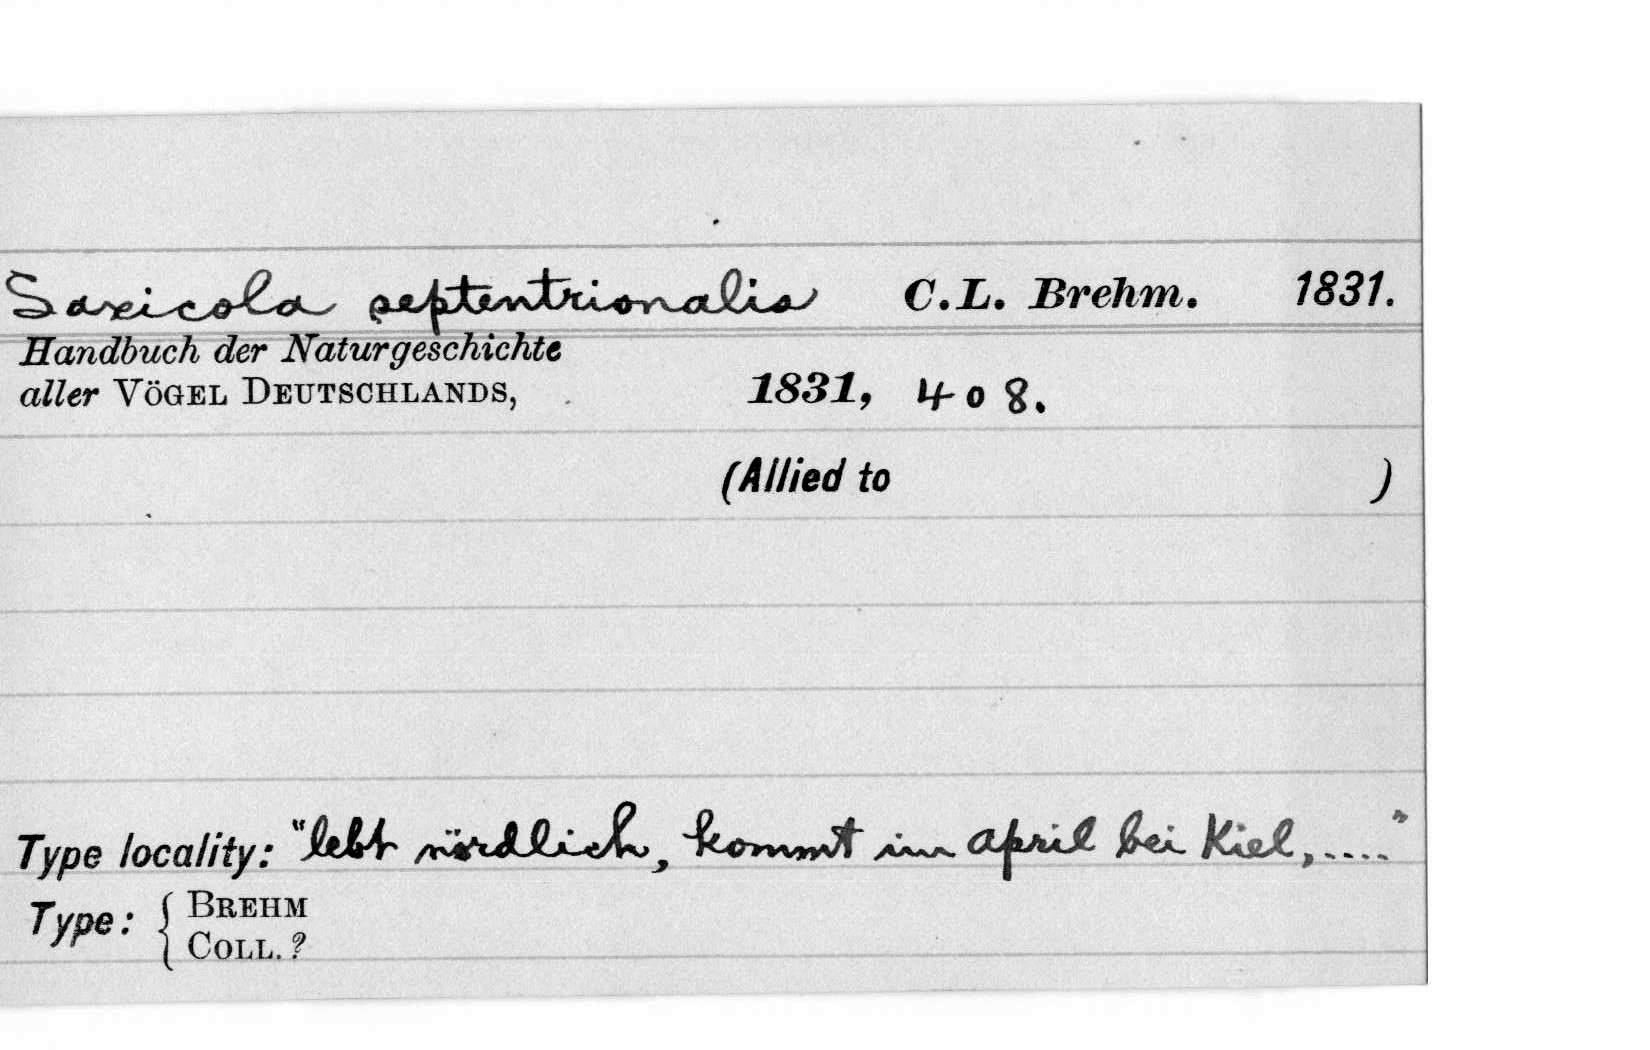 Saxicola septentrionalis C.L. Brehm. 1831.
Handbuch der Naturgeschichte
aller VÖGEL DEUTSCHLANDS, 1831, 408.
(Allied to )
Type locality: "lebt nördlich, kommt im april bei Kiel,....."
Type: { BREHM
COLL. ?